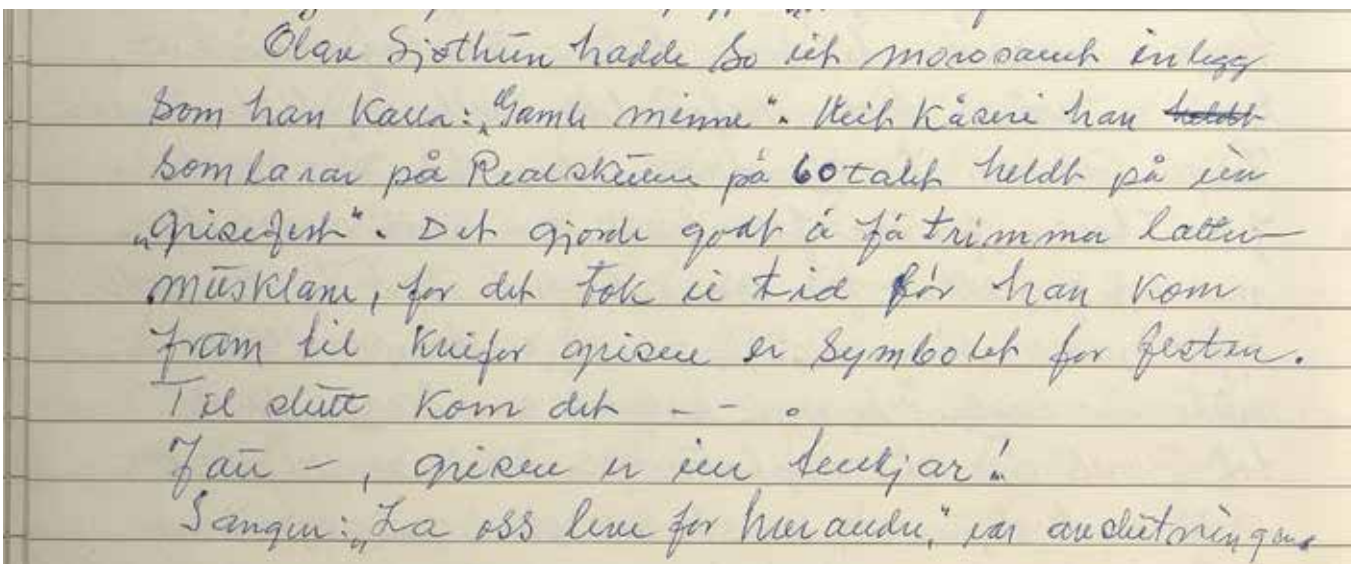 Olav Sjøthun hadde so eit morosamt innlegg
som han kalla: „Gamle minne“. Heit kåseri han heldt
som lærar på Realskulen på 60talet heldt på ein
„grisefest“. Det gjorde godt å få trimma latter-
musklane, for det tok ei tid før han kom
fram til kvifor grisen er symbolet for festen.
Til slutt kom det - - .
Jau -, grisen er ein tenkjar!
Sangen: „La oss leve for hverandre,“ var avslutningen.